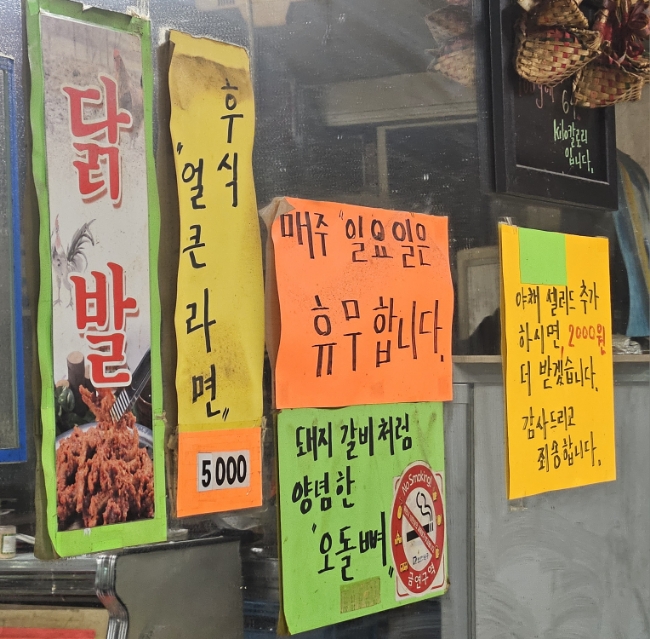 닭
발
후식
"얼큰라면"
5000
매주 "일요일"은
휴무합니다.
돼지 갈비처럼
양념한
"오돌뼈"
No Smoking!
금연구역
kilo칼로리
입니다.
야채 샐러드 추가
하시면, 2000원
더 받겠습니다.
감사드리고
죄송합니다.